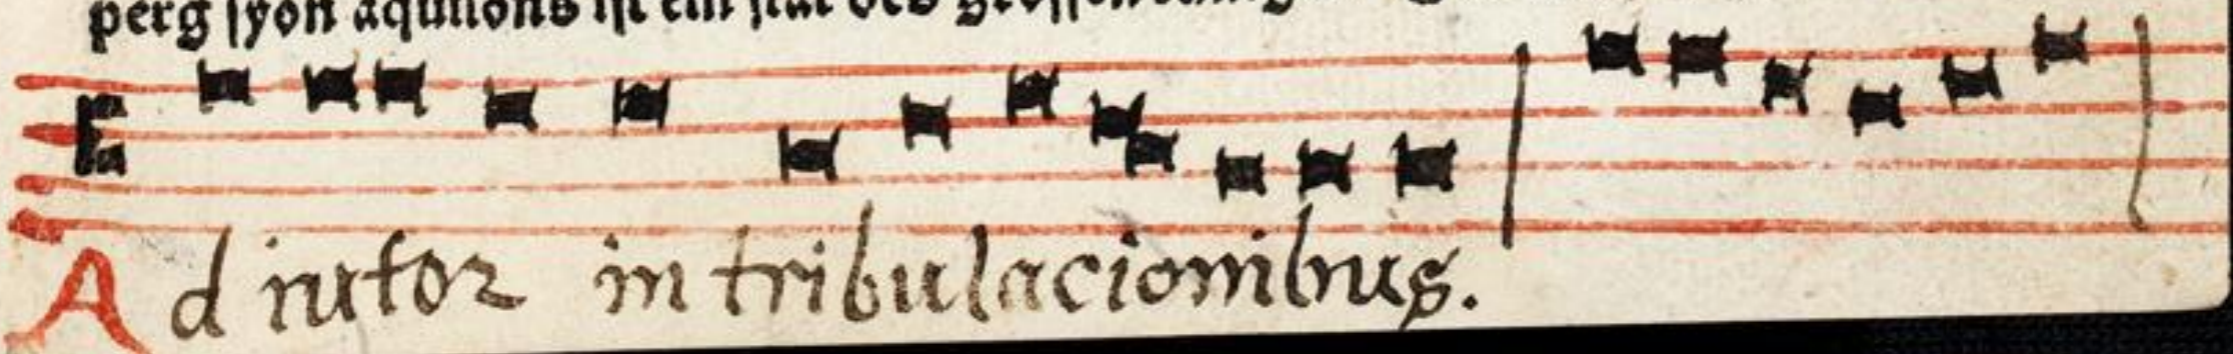 perg syon aquilonis ist ein stat des grossen
A d iutor in tribulacionibus.